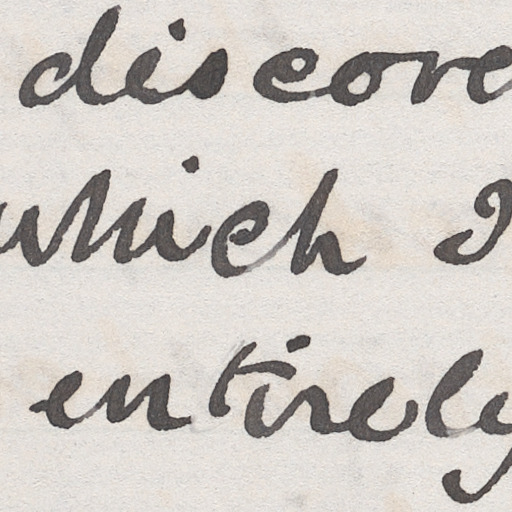 discove
which I
entirely